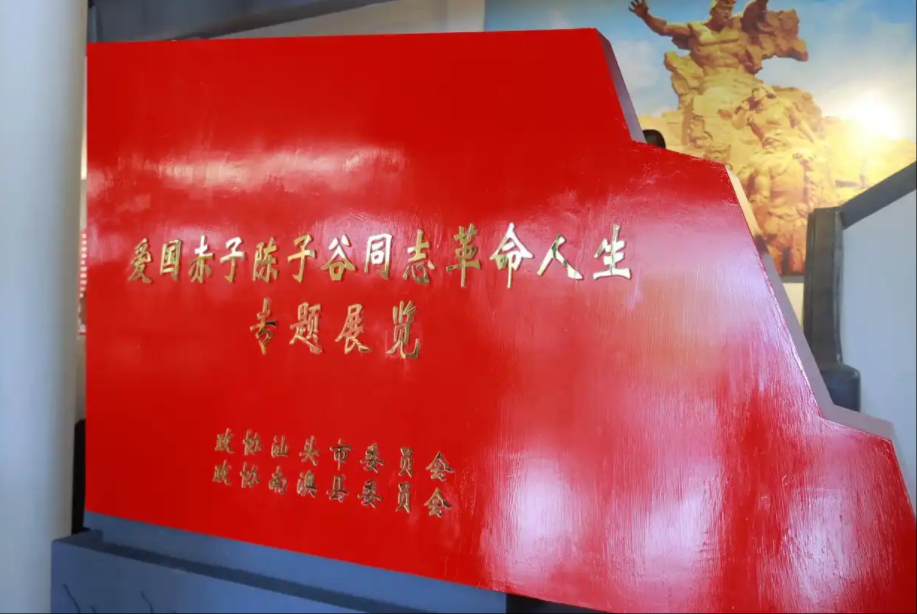 爱国赤子陈子谷同志革命人生
专题展览
政协汕头市委员会
政协南澳县委员会